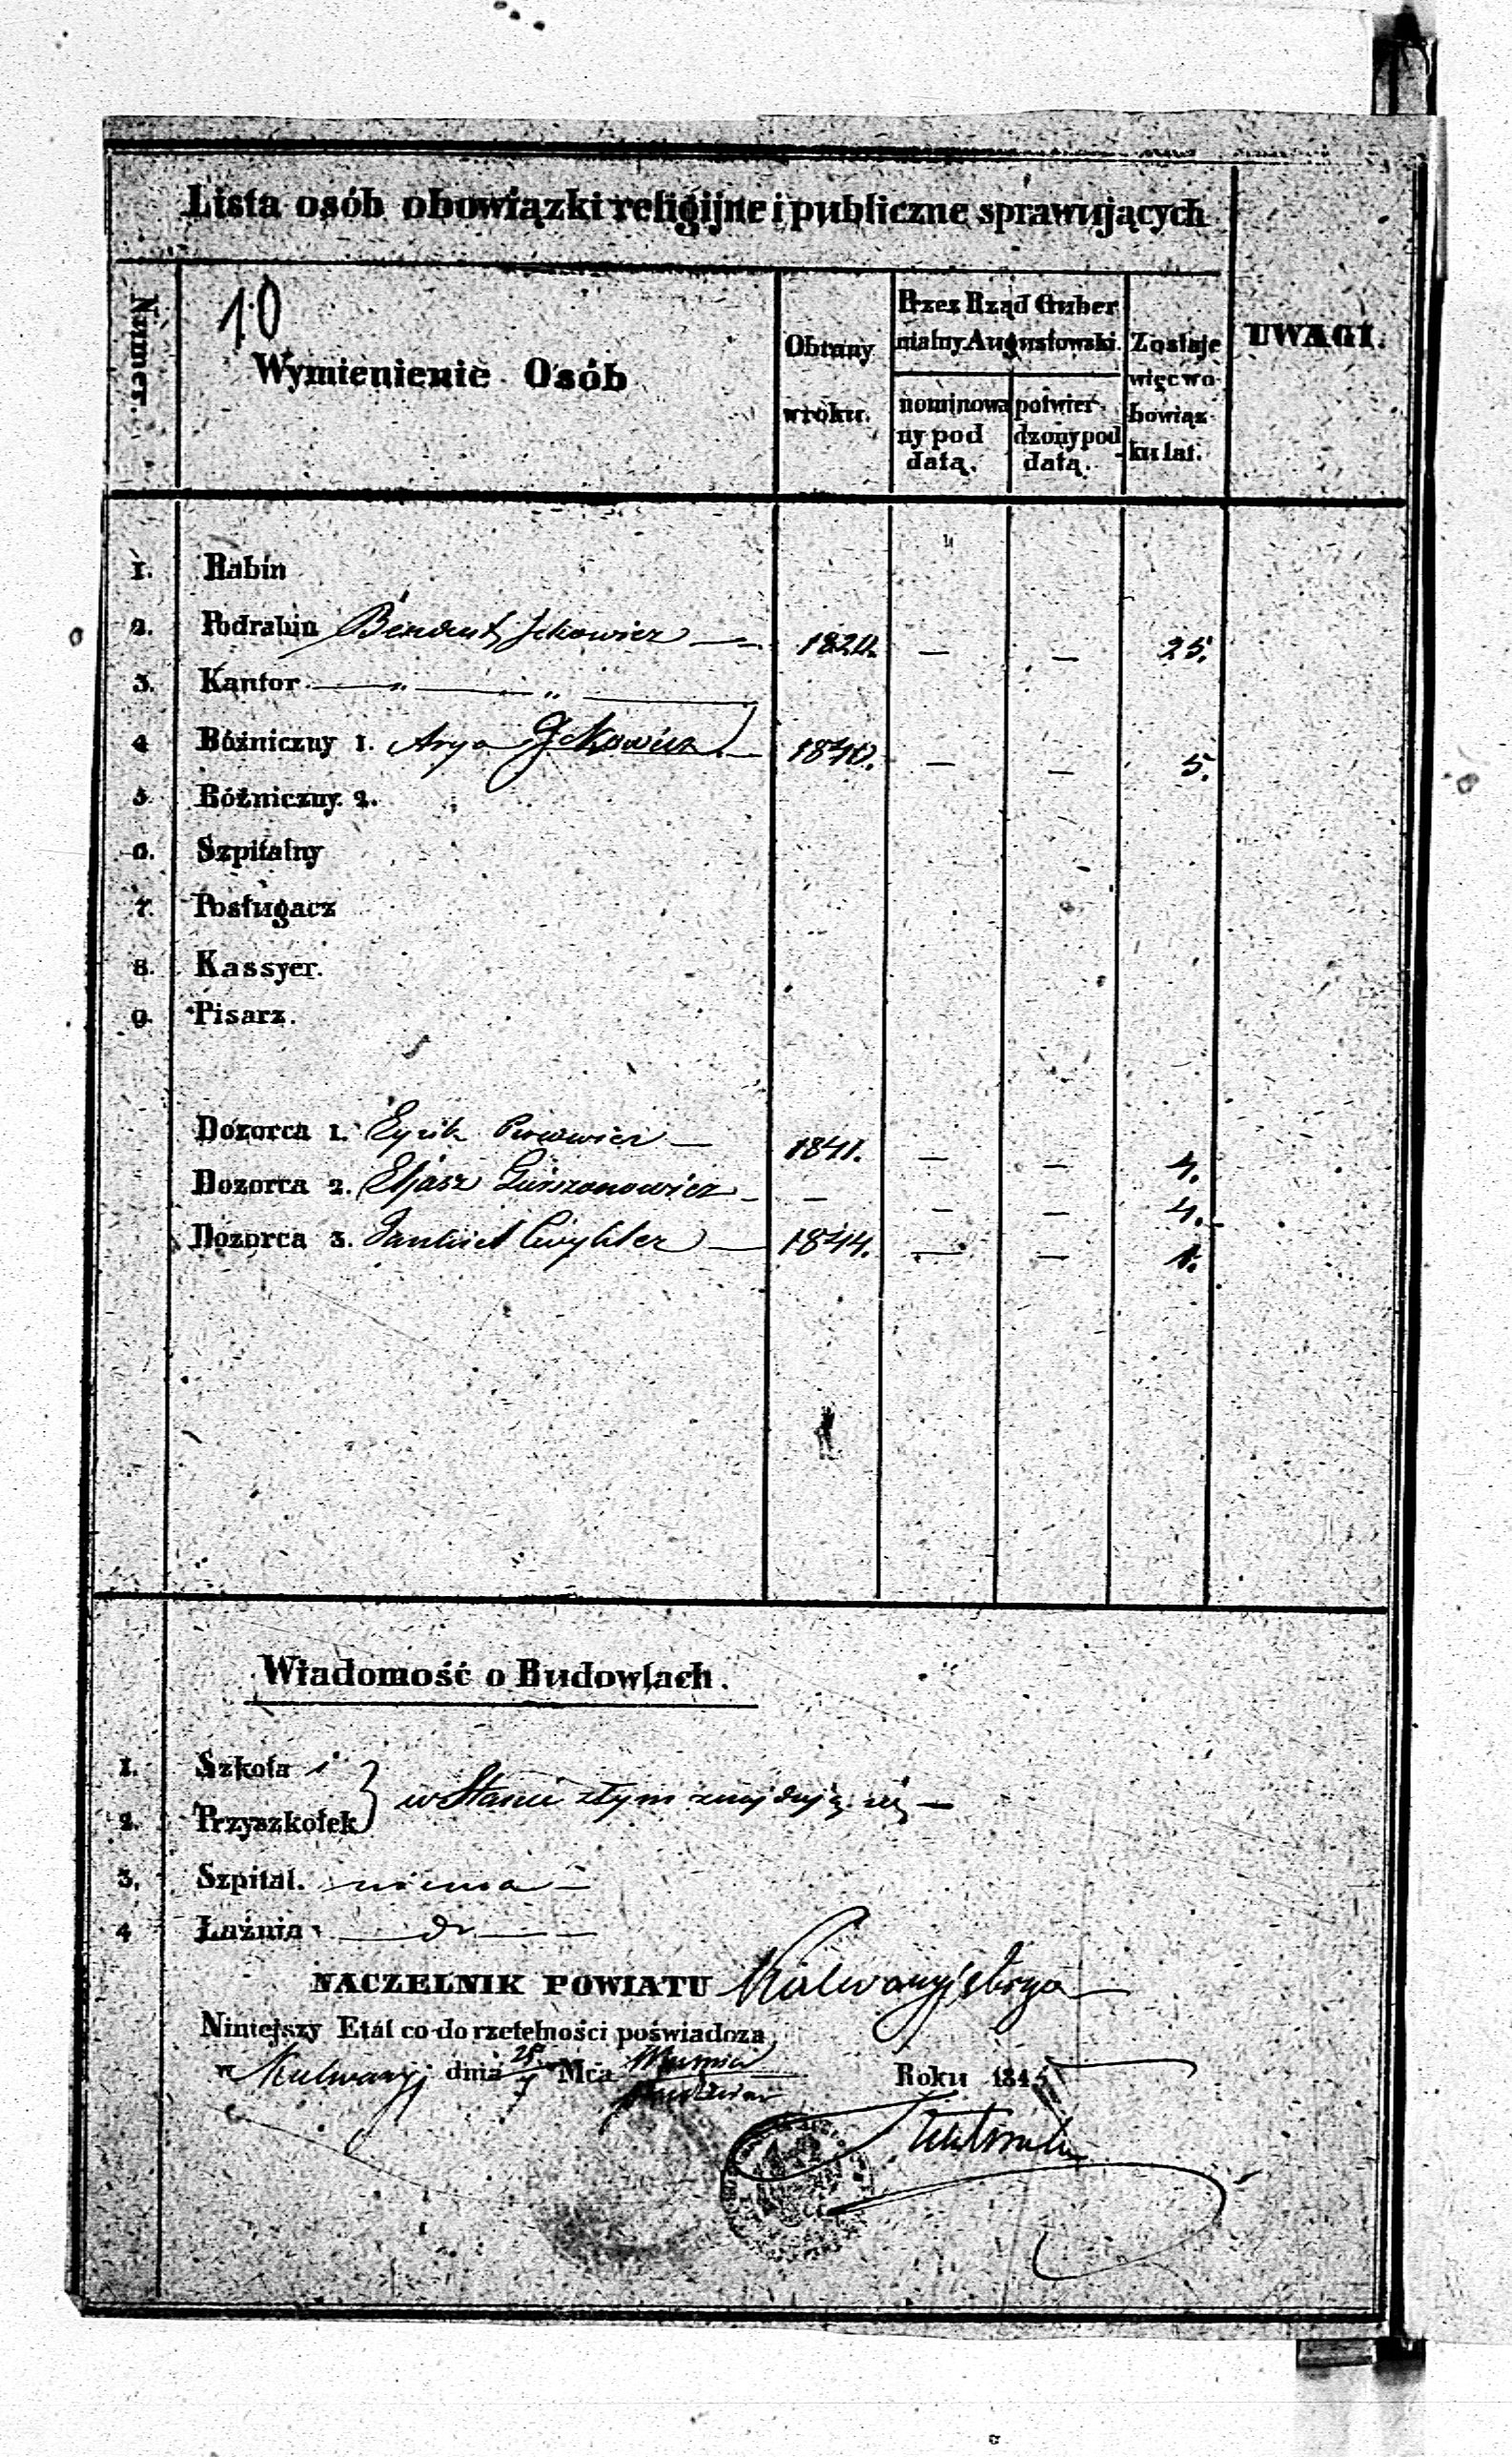 Lista osób obowiązki religijne i publiczne sprawujących
Numer.
10
Wymienienie Osób
Obrany w roku.
Przez Rząd Gubernialny Augustowski.
nominowany pod datą.
potwierdzony pod datą.
Zostaje więc w obowiązku lat.
UWAGI.
1. Rabin
2. Podrabin Jckowicz — 1820. — — 25.
3. Kantor — „ — „ —
4 Bóżniczny 1. Arya Jckowicz — 1840. — — 5.
5. Bóżniczny 2.
6. Szpitalny
7. Posługacz
8. Kassyer.
9. Pisarz.
Dozorca 1. — 1841. — — 4.
Dozorca 2. Eljasz — — — — 4.
Dozorca 3. — 1844. — — 1.
Wiadomość o Budowlach.
1. Szkoła i
2. Przyszkołek } w Stanie złym znajdują się —
3. Szpital. niema —
4 Łaźnia — do —
NACZELNIK POWIATU Kalwaryjskiego
Niniejszy Etat co do rzetelności poświadcza
w Kalwaryj dnia 25/7 Mca Roku 1845